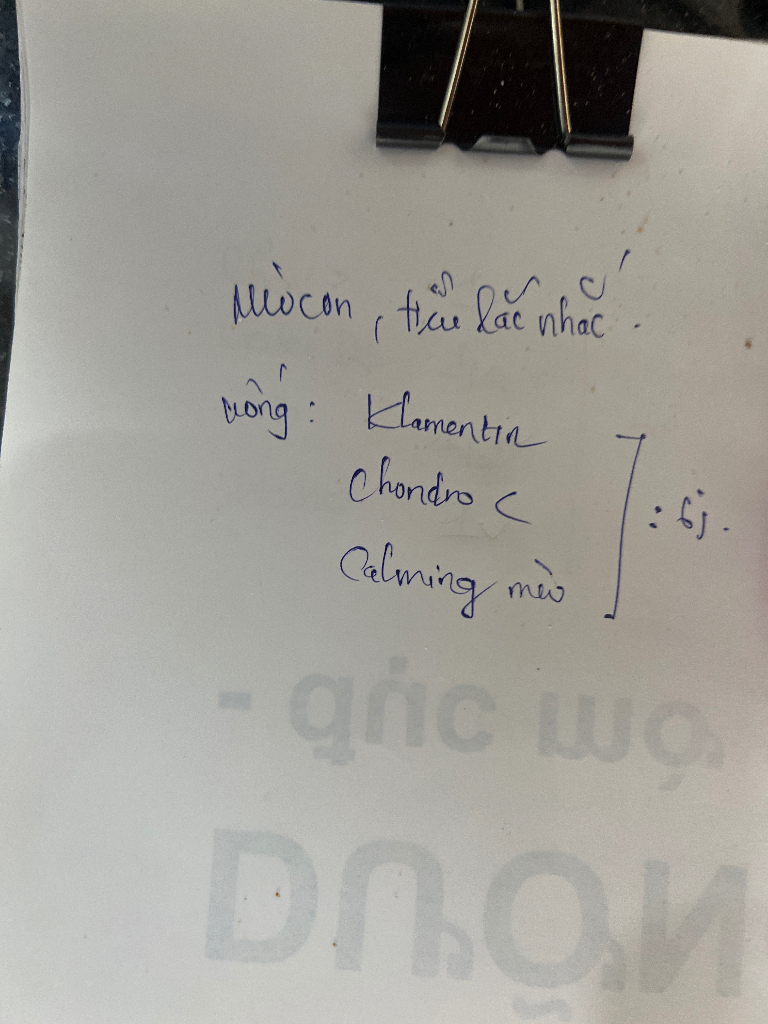 Mèo con, tiểu lắc nhắc.
uống: Klamentin
Chondro C
Calming mèo
] : 6j.